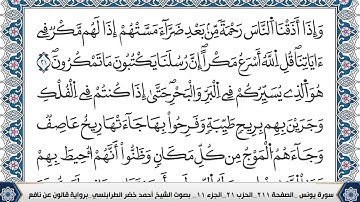 وَإِذَا أَذَقْنَا النَّاسَ رَحْمَةً مِّنۢ بَعْدِ ضَرَّآءَ مَسَّتْهُمْ إِذَا لَهُم مَّكْرٌ فِے
ءَايَاتِنَا قُلِ اِللَّهُ أَسْرَعُ مَكْراً إِنَّ رُسُلَنَا يَكْتُبُونَ مَا تَمْكُرُونَ ٢١
هُوَ اَلذِے يُسَيِّرُكُمْ فِے اِلْبَرِّ وَالْبَحْرِ حَتَّىٰ إِذَا كُنتُمْ فِے اِلْفُلْكِ
وَجَرَيْنَ بِهِم بِرِيحٍ طَيِّبَةٍ وَفَرِحُواْ بِهَا جَآءَتْهَا رِيحٌ عَاصِفٌ
وَجَآءَهُمُ اُلْمَوْجُ مِن كُلِّ مَكَانٍ وَظَنُّواْ أَنَّهُمْ أُحِيطَ بِهِمْ
سورة يونس .. الصفحة ٢١١ .. الحزب ٢١ .. الجزء ١١ .. بصوت الشيخ أحمد خضر الطرابلسي .. برواية قالون عن نافع